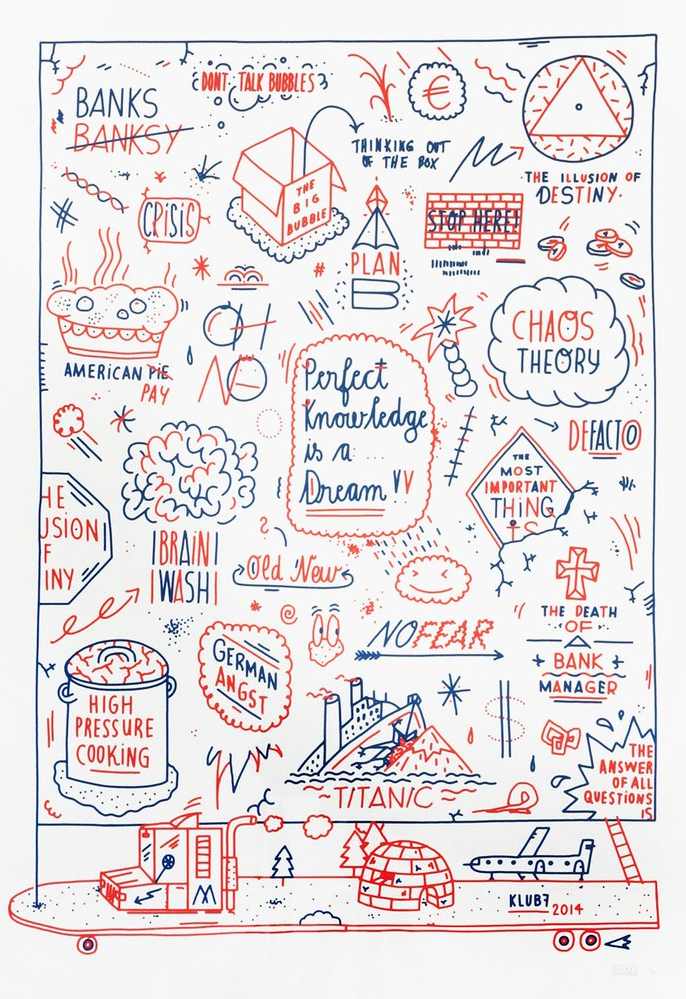 DONT TALK BUBBLES
€
BANKS
BANKSY
THINKING OUT
OF THE BOX
THE
BIG
BUBBLE
THE ILLUSION OF
DESTINY.
CRISIS
STOP HERE!
PLAN
B
OH
NO
CHAOS
THEORY
AMERICAN PIE
PAY
Perfect
Knowledge
is a
Dream
DEFACTO
THE
MOST
IMPORTANT
THING
IS
HE
USION
F
INY
BRAIN
WASH
Old New
THE DEATH
OF
A
BANK
MANAGER
NO FEAR
GERMAN
ANGST
HIGH
PRESSURE
COOKING
TITANIC
THE
ANSWER
OF ALL
QUESTIONS
IS
KLUB7
2014